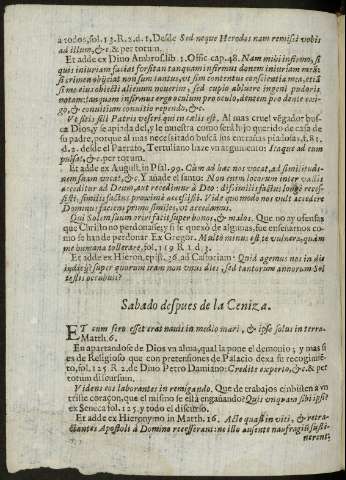 a todos, fol. 13. R. 2. d. 1, Desde Sed neque Herodes nam remisit vobis
ad illum, &c. & per totum.
Et adde ex Diuo Ambros. lib 1. Offic cap. 48. Nam mihi infirmo, si
quis iniuriam faciat forsitan tanquam infirmus donem iniuriam meam
si crimen obijciat non sum tantus, vt sim contentus conscientia mea, etiã
si me eius obiecti alienum nouerim, sed cupio abluere ingenui pudoris
notam; tanquam infirmus ergo oculum pro oculo, dentem pro dente exi-
go, & conuitium conuitio rependo, &c.
Vt sitis filij Patris vestri qui in cælis est. Al mas cruel végador bus-
ca Dios, y se apiada del, y le muestra como será hijo querido de casa de
su padre, porque al mas necessitado buscã los entrañas piadosas, f. 81.
d. 2. desde el Parrafo, Tertuliano haze vn argumento: Itaque ad tem
pus, &c. per totum.
Et adde ex August. in Psal. 99. Cùm ad hoc nos vocat, ad similitudi-
nem suam vocat, &c. Y añade el santo: Non enim locorum inter vallis
acceditur ad Deum, aut recedimus à Deo: dissimilis factus longè recess-
isti, similis factus proximè accessisti. Vide quomodo nos vult accedere
Dominus faciens primo similes, vt accedamus.
Qui Solem suum oriri facit super bonos, & malos. Que no ay ofensas
que Christo no perdonasse, y si se quexò de algunas, fue enseñarnos co-
mo se han de perdonar. Ex Gregor. Multò minus est te vulnera, quàm
me humana tollerare, fol. 119 R 1. d. 3.
Et adde ex Hieron, epist. 36. ad Castorian: Quid agemus nos in die
iudicij? super quorum iram non vnus dies, sed tantorum annorum Sol
testis occubuit?
Sabado despues de la Ceniza.
ET cum sero esset erat nauis in medio mari, & ipse solus in terra.
Matth. 6.
En apartandose de Dios vn alma, qual la pone el demonio; y mas si
es de Religioso que con pretensiones de Palacio dexa su recogimiẽ-
to, fol. 125. R 2. de Diuo Petro Damiano: Credite experto, &c. & per
totum discursum.
Videns eos laborantes in remigando. Que de trabajos embisten a vn
triste coraçon, que el mismo se està engañando? Quis vnquam sibi ipse?
ex Seneca fol. 125. y todo el discurso.
Et adde ex Hieronymo in Matth. 16. Acte quasi inviti, & retra-
ctantes Apostoli à Domino recesserant: ne illo absente naufragiũ susti-
nerent.